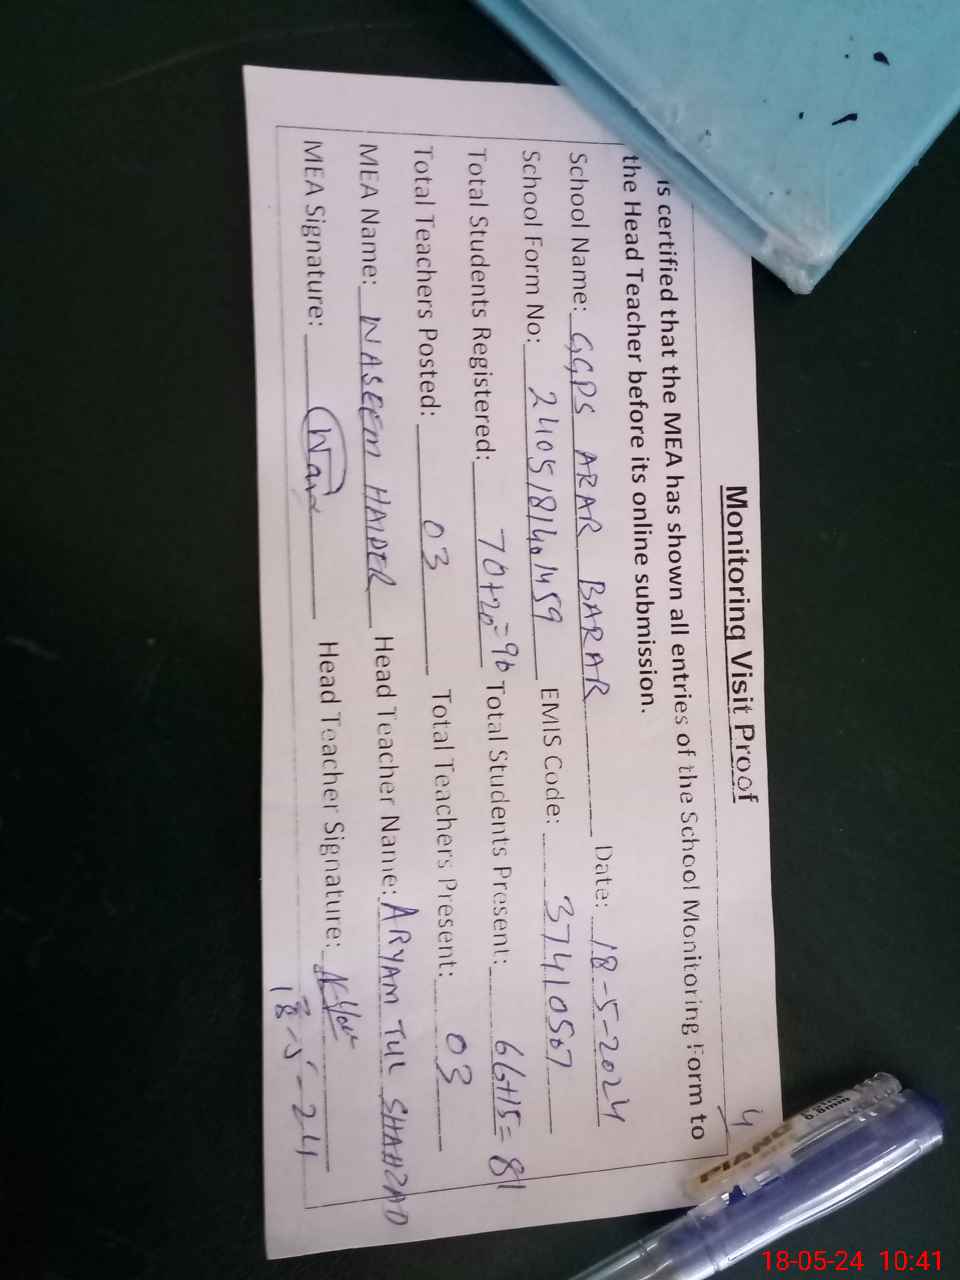 4
Monitoring Visit Proof
is certified that the MEA has shown all entries of the School Monitoring Form to
the Head Teacher before its online submission.
School Name: GGPS ARAR BARAR Date: 18-5-2024
School Form No: EMIS Code: 37410507
Total Students Registered: 70+20=90 Total Students Present: 66+15=81
Total Teachers Posted: 03 Total Teachers Present: 03
MEA Name: WASEEM HAIDER Head Teacher Name: ARYAM TUL SHAHZAD
MEA Signature: Head Teacher Signature:
18-5-24
PIANO
0.8mm
18-05-24 10:41